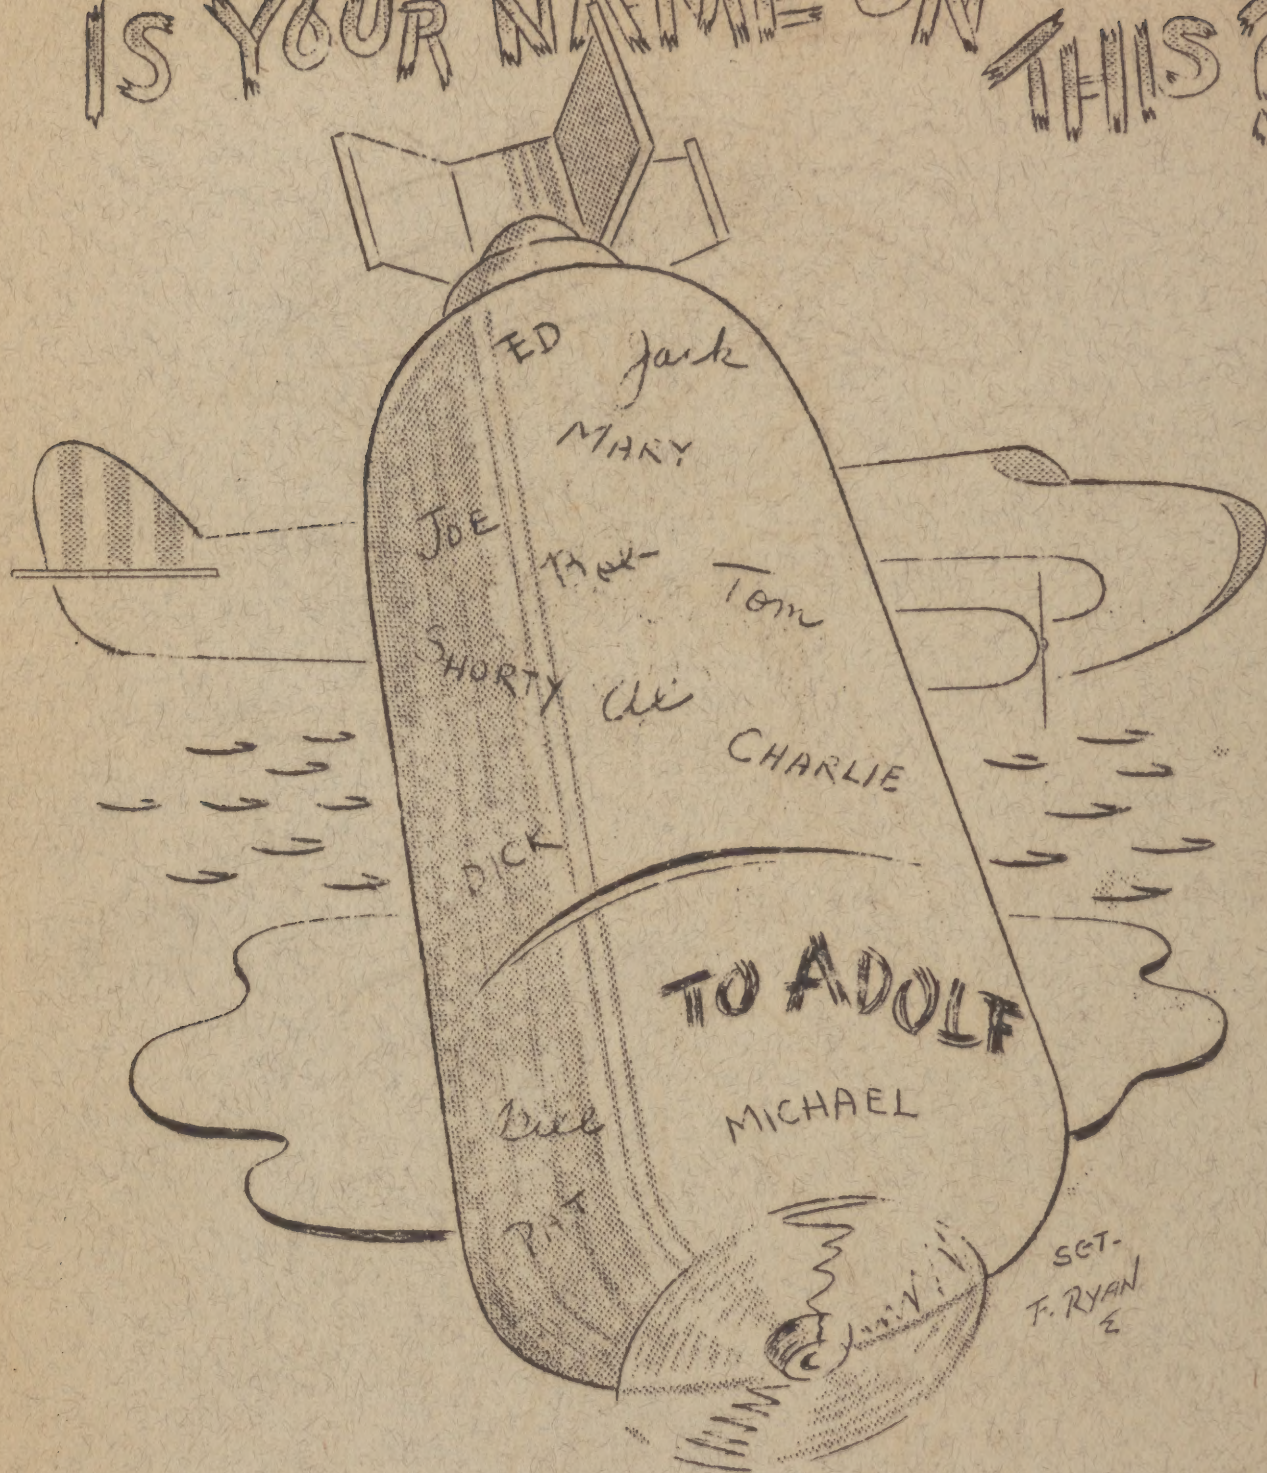 IS YOUR NAME ON THIS ?
ED Jack
MARY
JOE
Tom
SHORTY
CHARLIE
DICK
TO ADOLF
MICHAEL
Bill
PAT
SGT.
F. RYAN